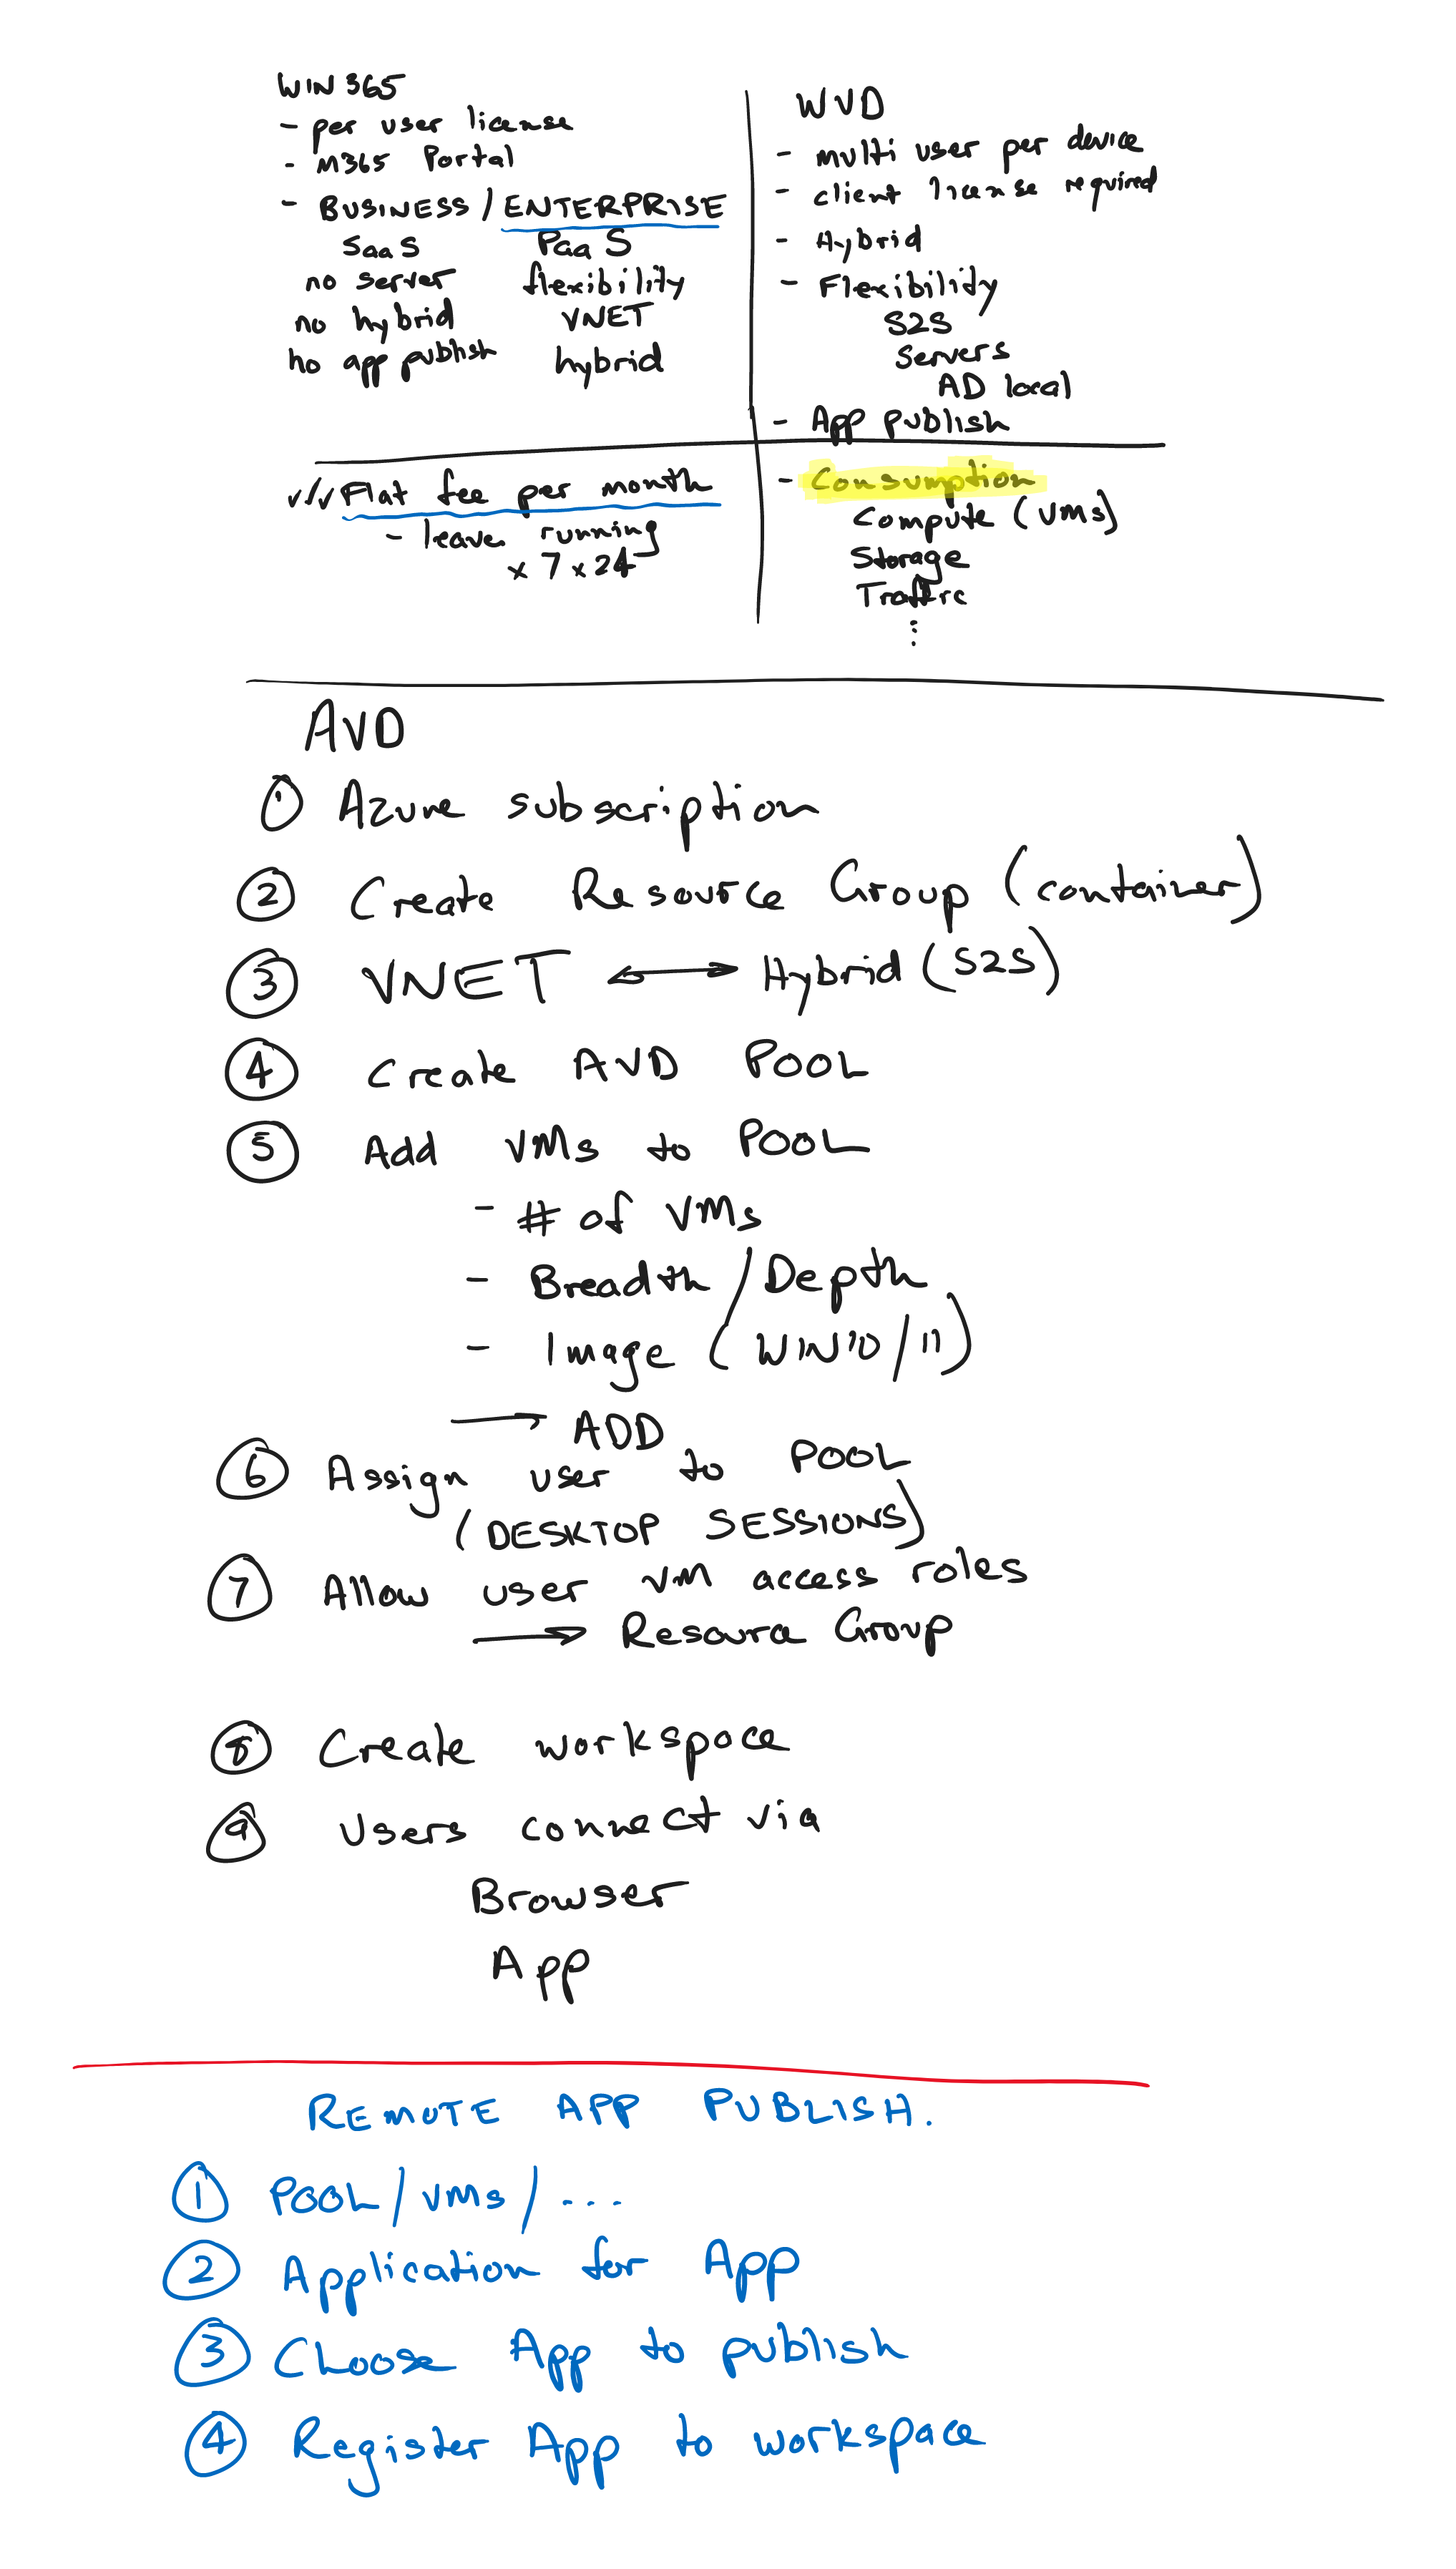 WIN 365
- per user license
- M365 Portal
- BUSINESS / ENTERPRISE
SaaS PaaS
no server flexibility
no hybrid VNET
no app publish hybrid
✓✓ Flat fee per month
- leave running
x 7 x 24
WVD
- multi user per device
- client license required
- Hybrid
- Flexibility
S2S
Servers
AD local
- App publish
- Consumption
Compute (VMs)
Storage
Traffic
⋮
AVD
① Azure subscription
② Create Resource Group (container)
③ VNET ↔ Hybrid (S2S)
④ Create AVD POOL
⑤ Add VMs to POOL
- # of VMs
- Breadth / Depth
- Image (WIN 10/11)
→ ADD
⑥ Assign user to POOL
(DESKTOP SESSIONS)
⑦ Allow user VM access roles
→ Resource Group
⑧ Create workspace
⑨ Users connect via
Browser
App
REMOTE APP PUBLISH.
① POOL / VMs / ...
② Application for App
③ Choose App to publish
④ Register App to workspace